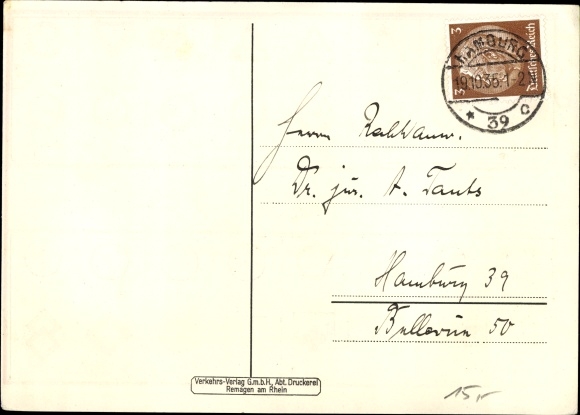 3 3
Deutsches Reich
HAMBURG
19.10.35.1-2
* 39 c
Herrn
Dr. jur. A. Tants
Hamburg 39
Bellevue 50
Verkehrs-Verlag G.m.b.H., Abt. Druckerei
Remagen am Rhein
15,-